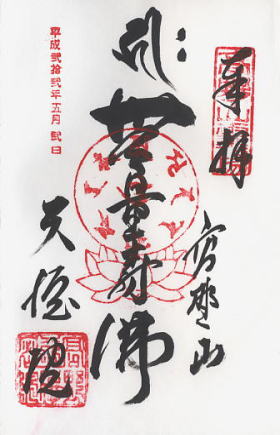 奉拝
高野山
無量寿佛
天徳院
平成弐拾弐年五月弐日